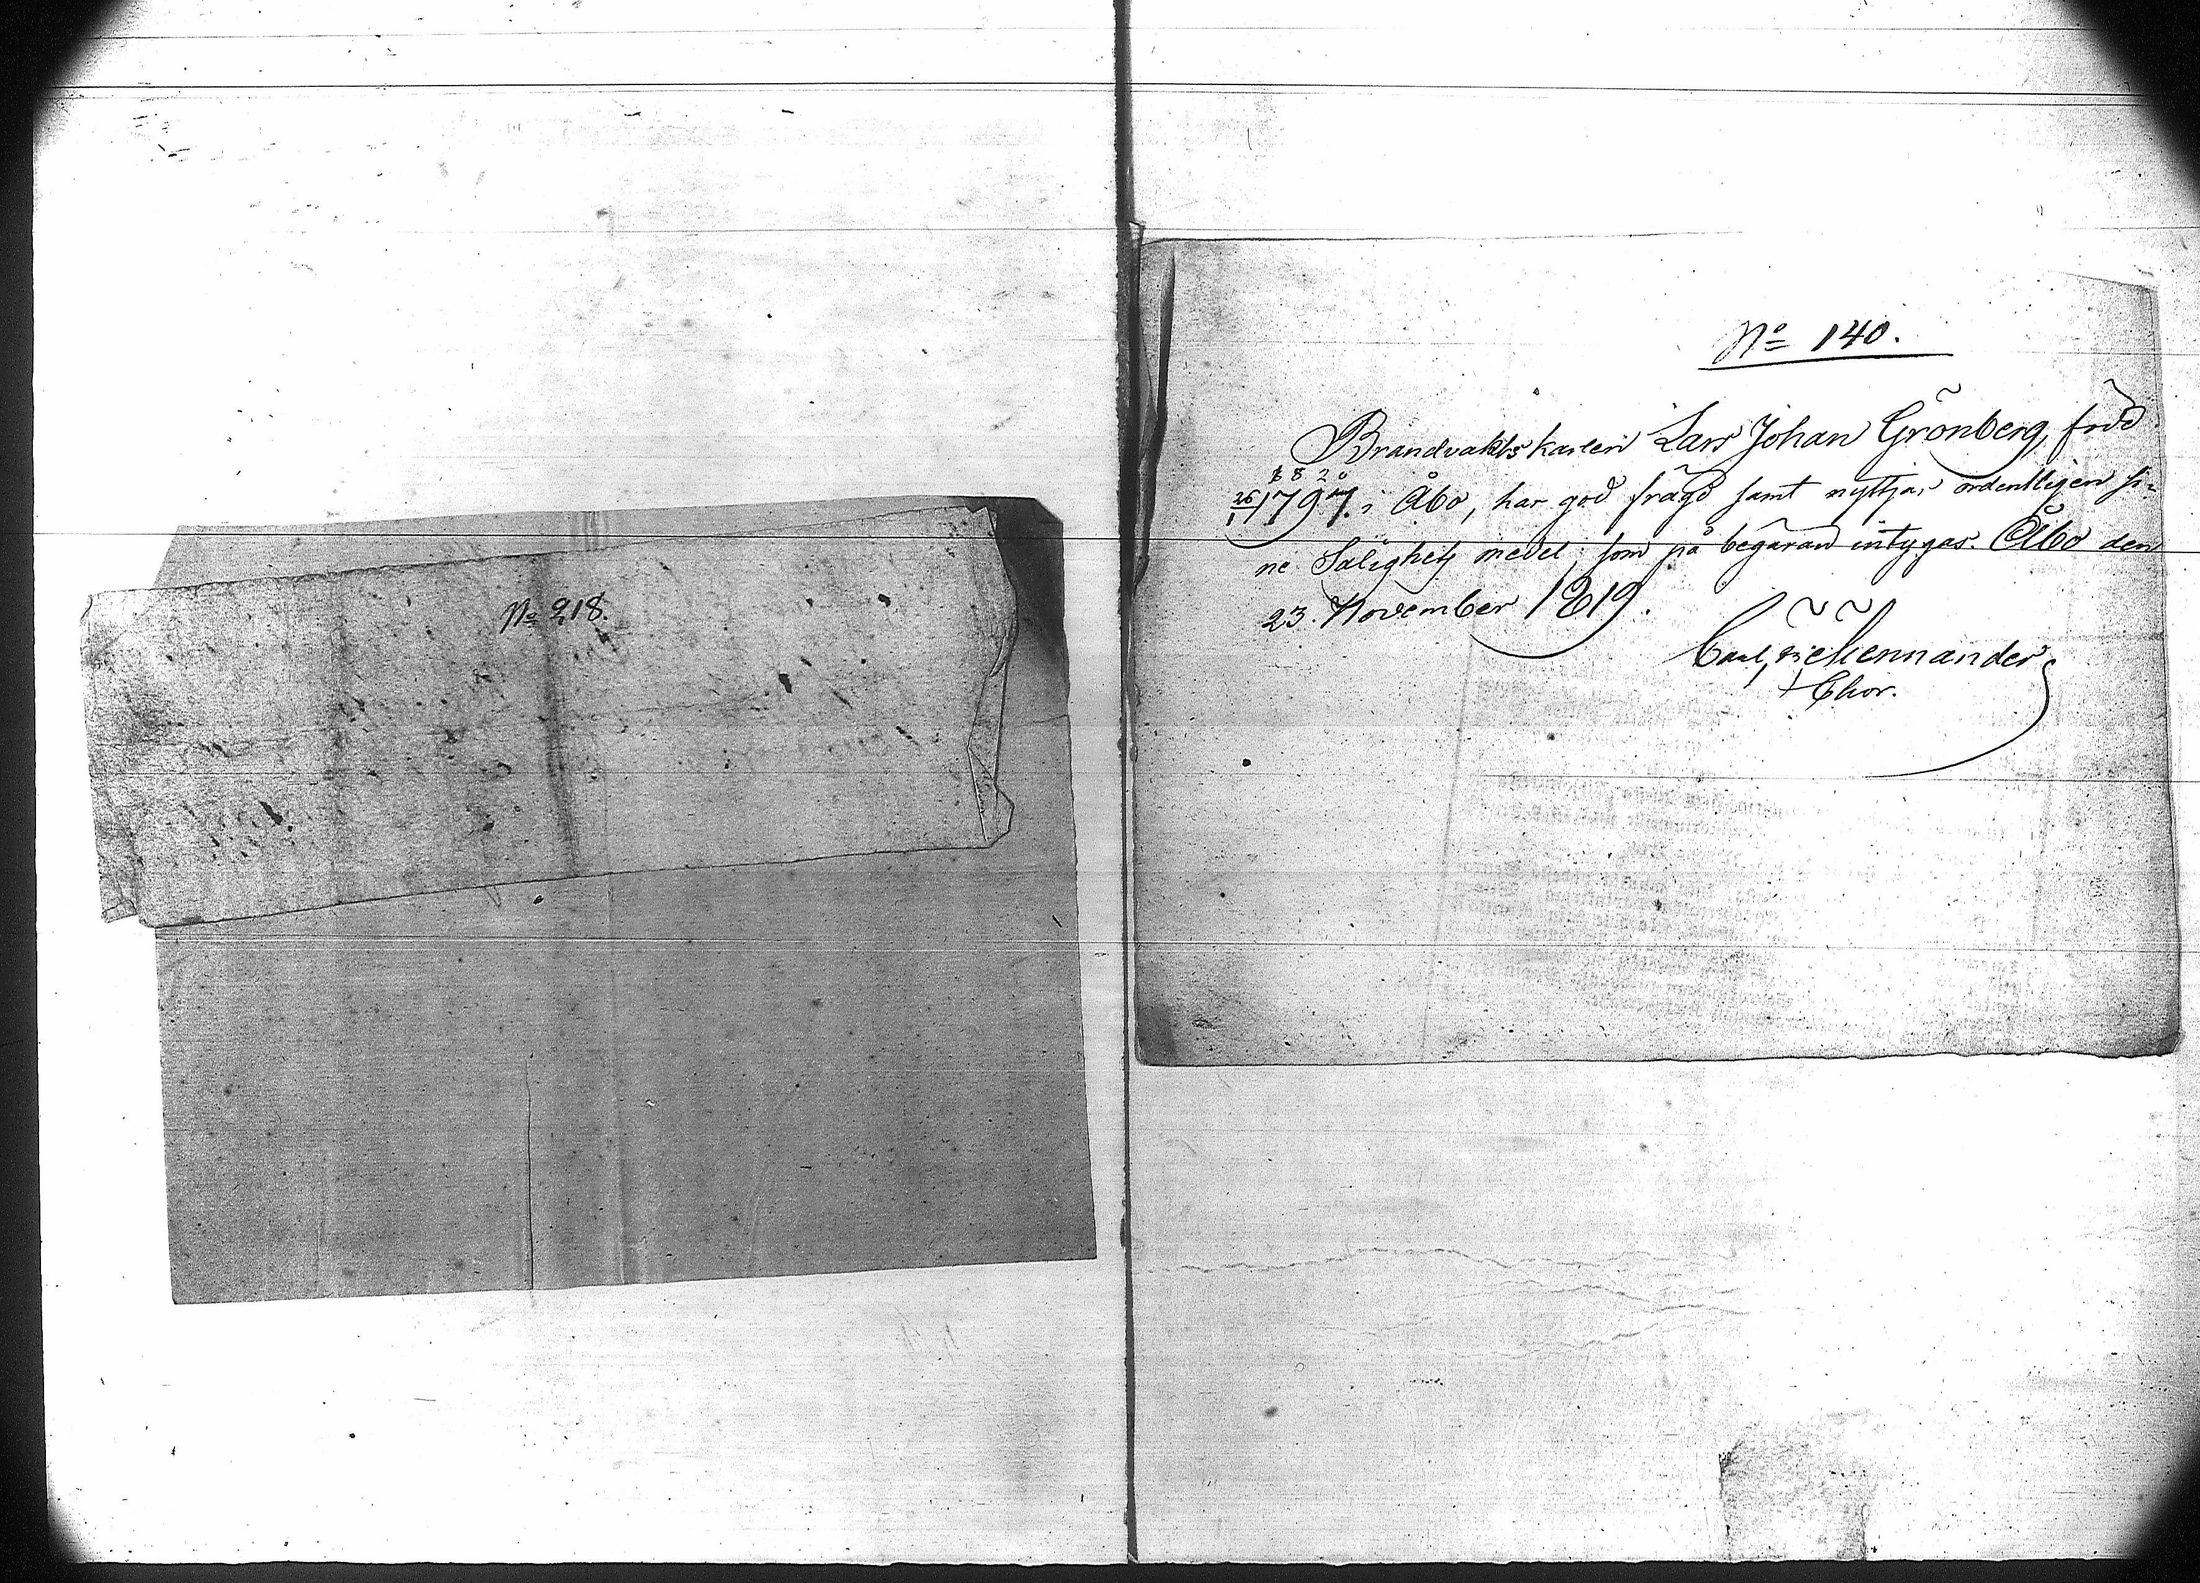 No 218.
No 140.
Brandvakts karlen Lars Johan Grönberg, född
1820
26/11 1797. i Åbo, har god frägd samt nyttjar ordentligen si-
ne Salighets medel; som på begäran intygas. Åbo den
23. November 1819.
Carl